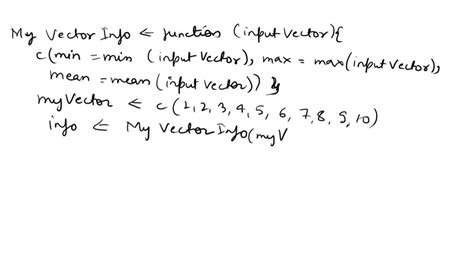 My Vector Info ← function (input Vector){
c(min = min (input Vector), max = max(input Vector),
mean = mean (input Vector)) }
my Vector ← c (1, 2, 3, 4, 5, 6, 7, 8, 9, 10)
info ← My Vector Info(my V